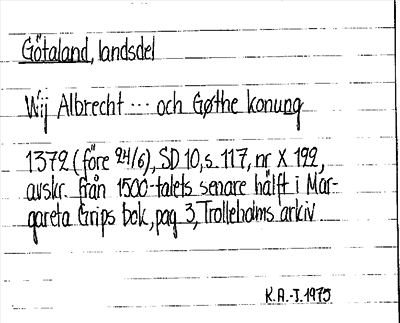 Götaland, landsdel
Wij Albrecht ... och Gøthe konung
1372 (före 24/6), SD 10, s. 117, nr X 122,
avskr. från 1500-talets senare hälft i Mar-
gareta Grips bok, pag 3, Trolleholms arkiv
K.A.-J. 1975